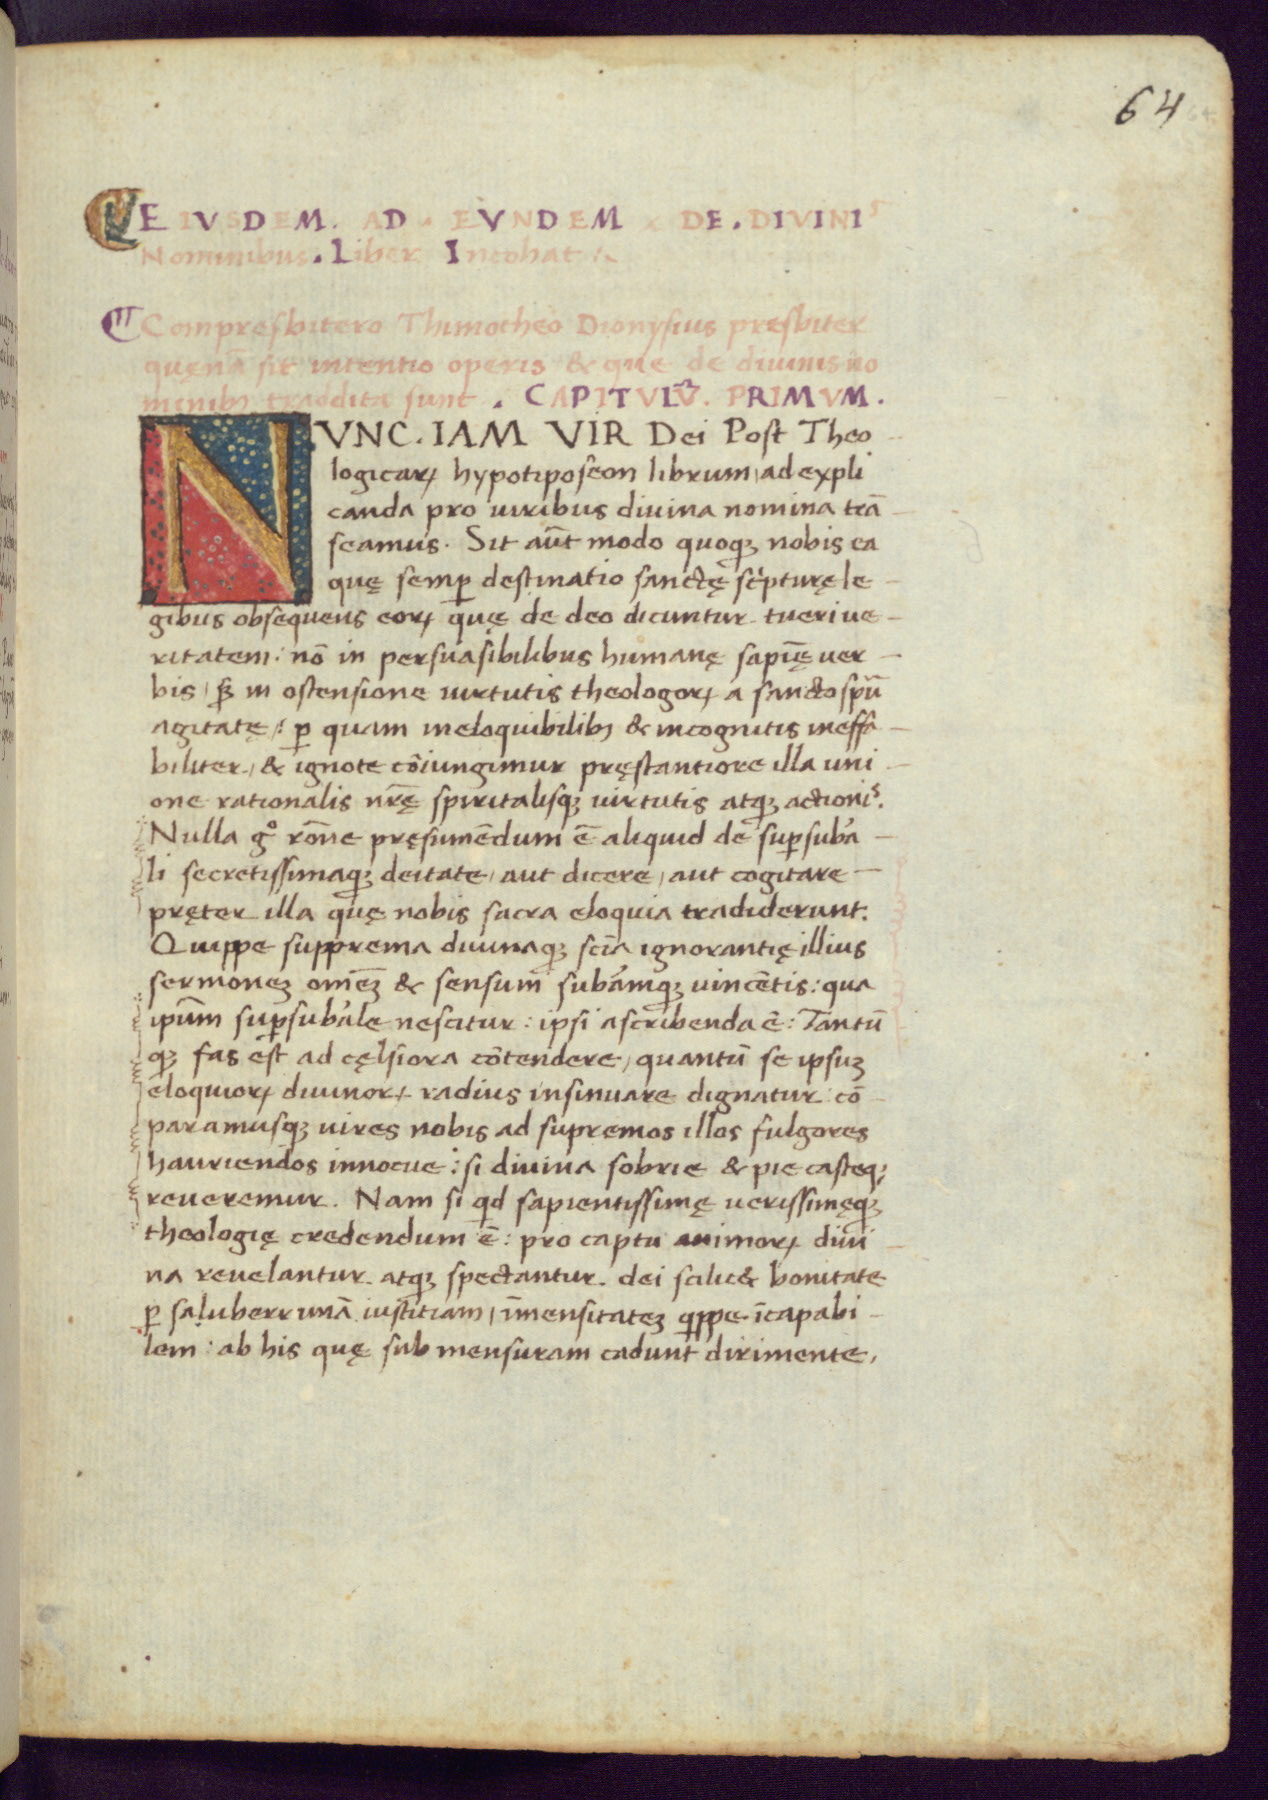 64
EIVSDEM. AD. EVNDEM DE. DIVINIS
Nominibus. Liber Incohat:
Compresbitero Thimotheo Dionysius presbiter
quęnā sit intentio operis & que de diuinis no
minibꝫ traddita sunt. CAPITVLV̄. PRIMVM.
NVNC. IAM VIR Dei Post Theo
logicaꝝ hypotiposeon librum, ad expli
canda pro uiribus diuina nomina trā
seamus. Sit aūt modo quoqꝫ nobis ea
quę semꝑ destinatio sanctę sc'pturę le
gibus obsequens eoꝝ quę de deo dicuntur tueri ue
ritatem: nō in persuasibilibus humanę sapīe uer
bis, sꝫ in ostensione uirtutis theologoꝝ a sancto spū
agitatę: ꝑ quam ineloquibilibꝫ & incognitis ineffa
biliter, & ignote cōiungimur pręstantiore illa uni
one rationalis nr̄ę spiritalisqꝫ uirtutis atqꝫ actionis.
Nulla gͦ rōne pręsumēdum ē aliquid de suꝑsubā
li secretissimaqꝫ deitate, aut dicere, aut cogitare
pręter illa quę nobis sacra eloquia tradiderunt.
Quippe supprema diuinaqꝫ scīa ignorantię illius
sermoneꝫ omēꝫ & sensum subāmqꝫ uincētis: qua
ipūm suꝑsubāle nescitur: ipsi ascribenda ē: Tantū
qꝫ fas est ad cęlsiora cōtendere, quantū se ipsuꝫ
eloquioꝝ diuinoꝝ radius insinuare dignatur: cō
paramusqꝫ uires nobis ad supremos illos fulgores
hauriendos innocue: si diuina sobrie & pie casteqꝫ
reueremur. Nam si qd sapientissimę uerissimęqꝫ
theologię credendum ē: pro captu animoꝝ diui
na reuelantur atqꝫ spectantur. dei scilic& bonitate
ꝑ saluberrimā iustitiam, īmensitateꝫ qippe īcapabi
lem: ab his quę sub mensuram cadunt dirimente,